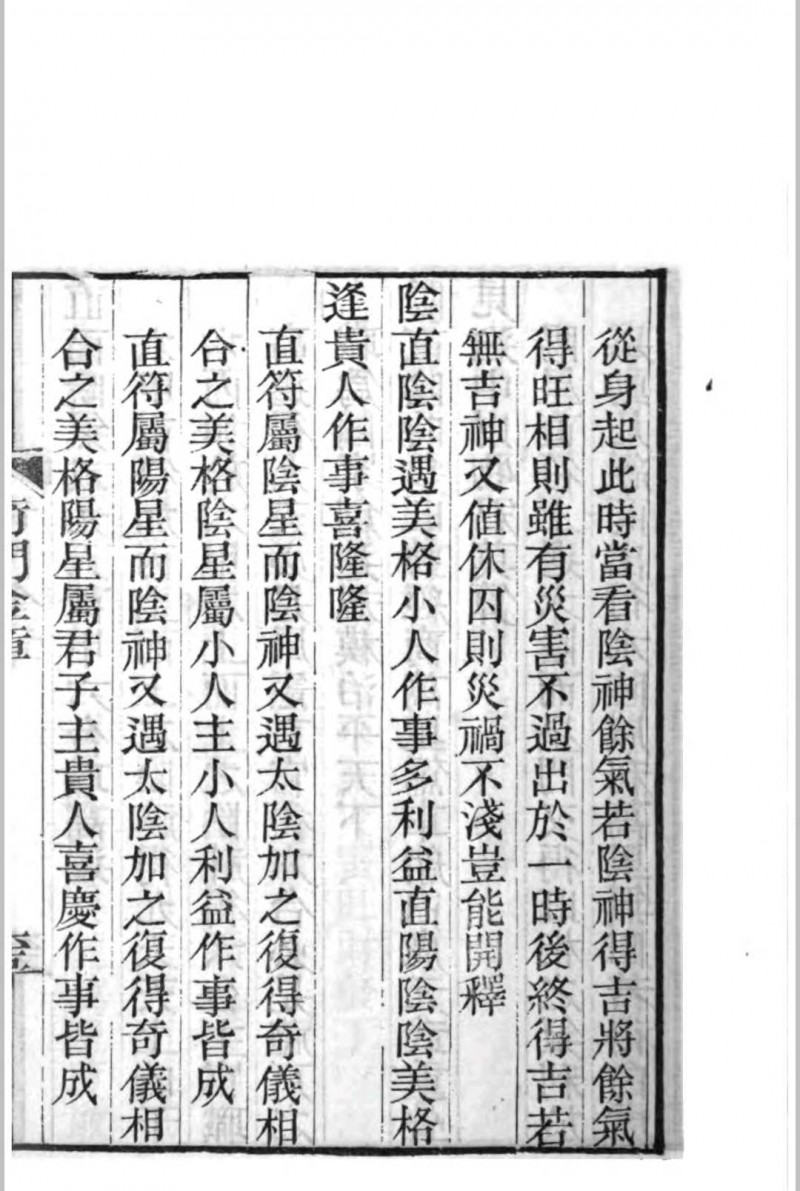 從身起此時當看陰神餘氣若陰神得吉將餘氣
得旺相則雖有災害不過出於一時後終得吉若
無吉神又值休囚則災禍不淺豈能開釋
陰直陰陰遇美格小人作事多利益直陽陰陰美格
逢貴人作事喜隆隆
直符屬陰星而陰神又遇太陰加之復得奇儀相
合之美格陰星屬小人主小人利益作事皆成
直符屬陽星而陰神又遇太陰加之復得奇儀相
合之美格陽星屬君子主貴人喜慶作事皆成